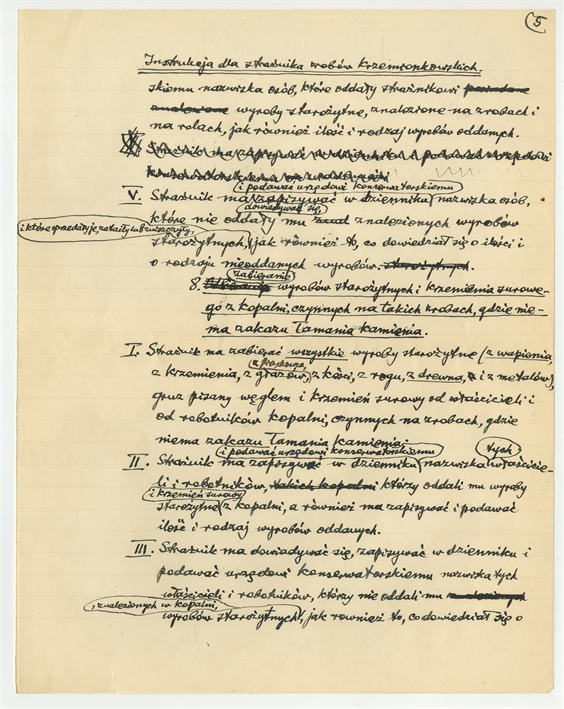 5
Instrukcja dla strażnika zrobów krzemionkowskich.
skiemu nazwiska osób, które oddały strażnikowi
znalezione wyroby starożytne, znalezione na zrobach i
na rolach, jak również ilość i rodzaj wyrobów oddanych.
Strażnik ma zapisywać w dzienniku i podawać urzędowi
konserwatorskiemu
i podawać urzędowi konserwatorskiemu
V. Strażnik ma zapisywać w dzienniku nazwiska osób,
dowiadywać się,
które nie oddały mu znalezionych wyrobów
i które sprzedały je, zataiły lub zniszczyły,
starożytnych, jak również to, co dowiedział się o ilości i
o rodzaju nieoddanych wyrobów starożytnych.
zabieranie
8. wyrobów starożytnych i krzemienia surowe-
go z kopalni, czynnych na takich zrobach, gdzie nie-
ma zakazu łamania kamienia.
I. Strażnik ma zabierać wszystkie wyroby starożytne (z wapienia,
z piaskowca,
z krzemienia, z głazów, z kości, z rogu, z drewna, i z metalów)
gruz pisany węglem i krzemień surowy od właścicieli i
od robotników kopalni, czynnych na zrobach, gdzie
niema zakazu łamania kamienia;
i podawać urzędowi konserwatorskiemu
tych
II. Strażnik ma zapisywać w dzienniku nazwiska właścicie-
li i robotników, takich kopalni którzy oddali mu wyroby
i krzemień surowy
starożytne z kopalni, a również ma zapisywać i podawać
ilość i rodzaj wyrobów oddanych.
III. Strażnik ma dowiadywać się, zapisywać w dzienniku i
podawać urzędowi konserwatorskiemu nazwiska tych
właścicieli i robotników, którzy nie oddali mu znalezionych
, znalezionych w kopalni,
wyrobów starożytnych, jak również to, co dowiedział się o